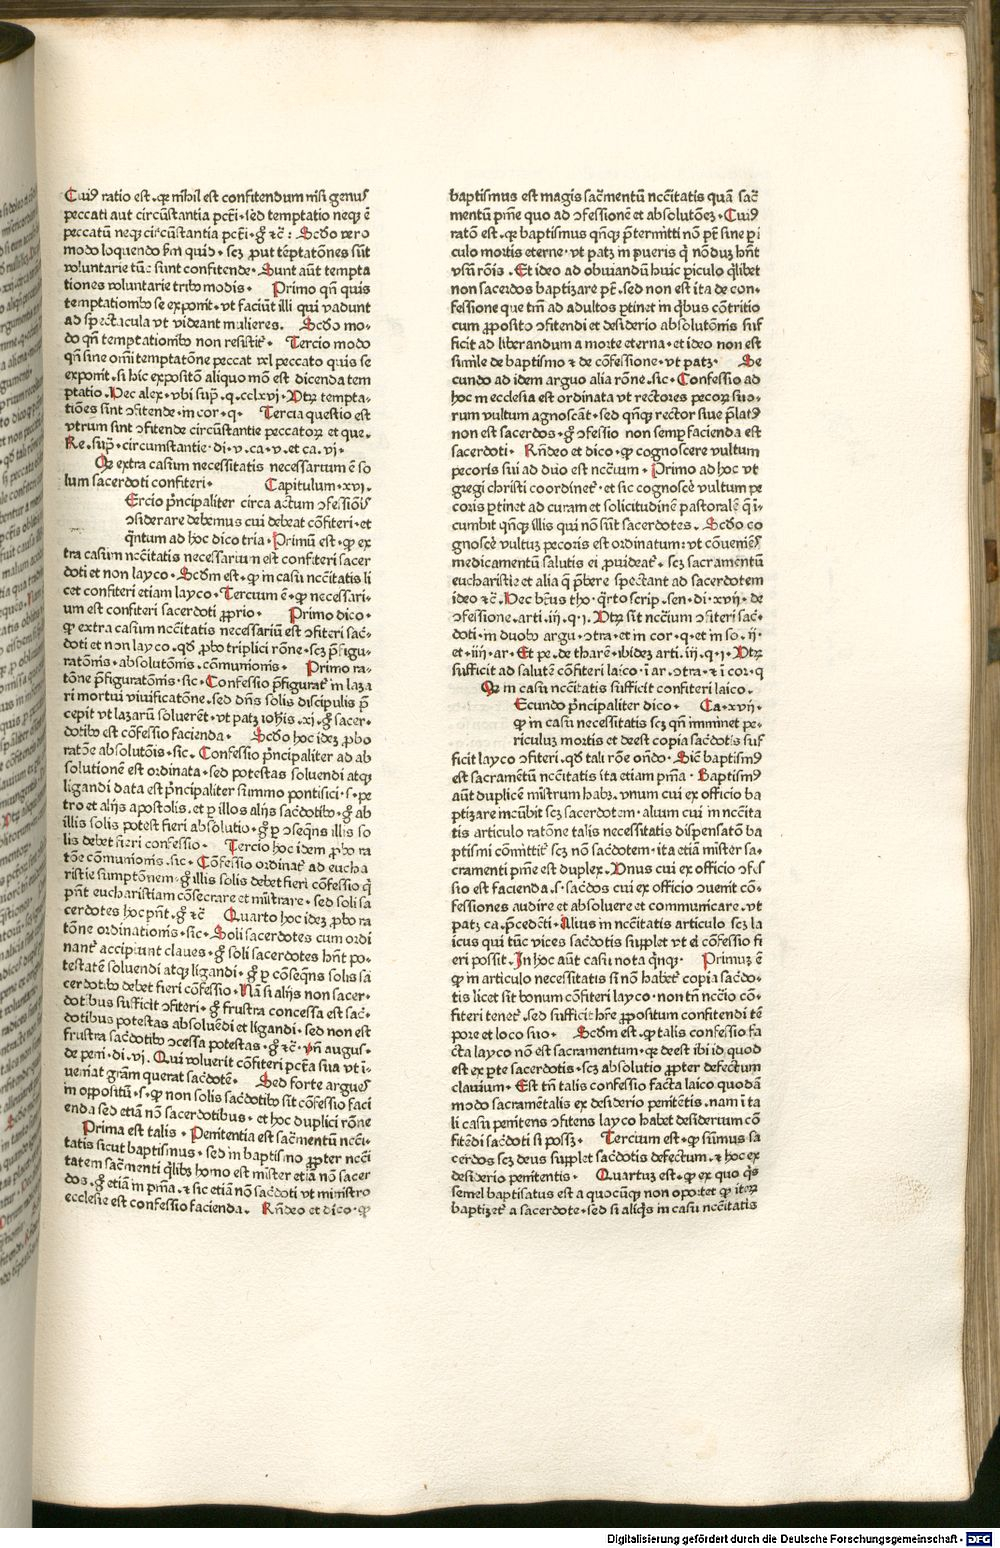 Cuiꝰ ratio est .qꝛ nihil est confitendum nisi genuſ
peccati aut circūstantia pctī · sed temptatio neqꝫ ē
peccatū neqꝫ circūstantia pctī · gͦ ⁊c̄ : Scd̄o vero
modo loquendo ẜm quid · scꝫ ꝓut tēptatōnes sūt
voluntarie tūc sunt confitende · Sunt aūt tempta
tiones voluntarie tribꝰ modis · Primo qn̄ quis
temptationibꝰ se exponit · vt faciūt illi qui vadunt
ad spectacula vt videant mulieres. Scd̄o mo-
do qn̄ temptationibꝰ non resistit᷑ · Tercio modo
qn̄ sine om̄i temptatōne peccat vel peccato quis se
exponit · si hic expositō aliquo mō est dicenda tem
ptatio · Hec alex · vbi sup̄ · q · cclxvi · Vtꝝ tempta-
tiōes sint ↄfitende · in cor · q · Tercia questio est
vtrum sint ↄfitende circūstantie peccatoꝝ et que ·
Re · sup̄ · circumstantie · di · v · ca · v · et ca · vi ·
Qꝫ extra casum necessitatis necessarium ē so
lum sacerdoti confiteri · Capitulum · xvi ·
Ercio pn̄cipaliter circa actum ↄfessiōiſ
ↄsiderare debemus cui debeat cōfiteri · et
q̄ntum ad hoc dico tria · Primū est · ꝙ ex
tra casum nc̄citatis necessarium est confiteri sacer
doti et non layco · Scd̄m est · ꝙ in casu nc̄citatis li
cet confiteri etiam layco · Tercium ē · ꝙ necessari-
um est confiteri sacerdoti ꝓprio · Primo dico ·
ꝙ extra casum nc̄citatis necessariū est ↄfiteri sac̄-
doti et non layco · qd̄ ꝓbo triplici rōne · scꝫ p̄figu-
ratōnis · absolutōnis · cōmunionis · Primo ra-
tōne p̄figuratōnis · sic · Confessio p̄figurat᷑ in laza
ri mortui viuificatōne · sed dn̄s solis discipulis p̄
cepit vt lazarū soluerēt · vt patꝫ iohis · xi · gͦ sacer-
dotibꝰ est cōfessio facienda · Scd̄o hoc ideꝫ ꝓbo
ratōe absolutōis · sic · Confessio pn̄cipaliter ad ab
solutionē est ordinata · sed potestas soluendi atqꝫ
ligandi data est pn̄cipaliter summo pontifici · s · pe
tro et alijs apostolis · et ꝑ illos alijs sacd̄otibꝰ · gͦ ab
illis solis potest fieri absolutio · gͦ ꝑ ↄseqn̄s illis so
lis debet fieri confessio · Tercio hoc idem ꝓbo ra
tōe cōmunionis · sic · Cōfessio ordinat᷑ ad eucha
ristie sumptōnem · gͦ illis solis debet fieri cōfessio q̄
pn̄t eucharistiam cōsecrare et mīstrare · sed soli sa
cerdotes hoc pn̄t · gͦ ⁊c̄ Quarto hoc ideꝫ ꝓbo ra
tōne ordinationis · sic · Soli sacerdotes cum ordi
nant᷑ accipiunt claues · gͦ soli sacerdotes hn̄t po-
testatē soluendi atqꝫ ligandi · gͦ ꝑ cōseqn̄s solis sa
cerdotibꝰ debet fieri cōfessio · Nā si alijs non sacer-
dotibus sufficit ↄfiteri · gͦ frustra concessa est sac̄-
dotibus potestas absoluēdi et ligandi · sed non est
frustra sacd̄otibꝰ ↄcessa potestas · gͦ ⁊c̄ · vn̄ augus-
de peni · di · vi · Qui voluerit cōfiteri pctā sua vt i-
ueniat grām querat sacd̄otē · Sed forte argueſ
in oppositū · s · ꝙ non solis sacd̄otibꝰ sit cōfessio faci
enda sed etiā nō sacerdotibus · et hoc duplici rōne
Prima est talis · Penitentia est sac̄mentū nc̄ci-
tatis sicut baptismus · sed in baptismo ꝓpter nc̄ci
tatem sac̄menti qͥlibꝫ homo est mīster etiā nō sacer
dos · gͦ etiā in pn̄ia · ⁊ sic etiā nō sacd̄oti vt ministro
ecclesie est confessio facienda · Rn̄deo et dico · ꝙ
baptismus est magis sac̄mentū nc̄citatis quā sac̄
mentū pn̄ie quo ad ↄfessionē et absolutōeꝫ · Cuiꝰ
ratō est · qꝛ baptismus qn̄qꝫ p̄termitti nō pt̄ sine ꝑi
culo mortis eterne · vt patꝫ in pueris qͥ nōduꝫ hn̄t
vsū rōis · Et ideo ad obuiandū huic ꝑiculo qͥlibet
non sacerdos baptizare pt̄ · sed non est ita de con-
fessione que tm̄ ad adultos ꝑtinet in qͥbus cōtritio
cum ꝓposito ↄfitendi et desiderio absolutōnis suf
ficit ad liberandum a morte eterna · et ideo non est
simile de baptismo ⁊ de cōfessione · vt patꝫ · Se
cundo ad idem arguo alia rōne · sic · Confessio ad
hoc in ecclesia est ordinata vt rectores pecoꝝ suo-
rum vultum agnoscāt · sed qn̄qꝫ rector siue p̄latꝰ
non est sacerdos · gͦ ↄfessio non semꝑ facienda est
sacerdoti · Rn̄deo et dico · ꝙ cognoscere vultum
pecoris sui ad duo est nc̄cium · Primo ad hoc vt
gregi christi coordinet᷑ · et sic cognoscē vultum pe
coris ꝑtinet ad curam et solicitudinē pastoralē q̄ i-
cumbit qn̄qꝫ illis qui nō sūt sacerdotes · Scd̄o co
gnoscē vultuꝫ pecoris est ordinatum : vt cōueniēſ
medicamentū salutis ei ꝓuideat᷑ · scꝫ sacramentū
eucharistie et alia q̄ p̄bere spectant ad sacerdotem
ideo ⁊c̄ · Hec btūs tho · q̄rto scrip · sen · di · xvij · de
ↄfessione · arti · iij · q · i · Vtꝝ sit nc̄cium ↄfiteri sac̄-
doti · in duobꝰ argu · ↄtra · et in cor · q · et in so · ij ·
et · iij · ar · Et pe · de tharē · ibideꝫ arti · iij · q · i · Vtꝝ
sufficit ad salutē cōfiteri laico · ī ar · ↄtra · ⁊ ī cor · q
Qꝫ in casu nc̄citatis sufficit confiteri laico ·
Ecundo pn̄cipaliter dico · Ca · xvij ·
ꝙ in casu necessitatis scꝫ qn̄ imminet pe-
riculuꝫ mortis et deest copia sacd̄otis suf
ficit layco ↄfiteri · qd̄ tali rōne on̄do · Sic̄ baptismꝰ
est sacramētū nc̄citatis ita etiam pn̄ia · Baptismꝰ
aūt duplicē mīstrum habꝫ · vnum cui ex officio ba
ptizare incūbit scꝫ sacerdotem · alium cui in nc̄cita
tis articulo ratōne talis necessitatis dispensatō ba
ptismi cōmittit᷑ scꝫ nō sacd̄otem · ita etiā mīster sa-
cramenti pn̄ie est duplex · Vnus cui ex officio ↄfeſ
sio est facienda · s · sacd̄os cui ex officio ↄuenit cō-
fessiones audire et absoluere et communicare · vt
patꝫ ca · p̄cedēti · Alius in nc̄citatis articulo scꝫ la
icus qui tūc vices sacd̄otis supplet vt ei cōfessio fi
eri possit · In hoc aūt casu nota qn̄qꝫ · Primuꝫ ē
ꝙ in articulo necessitatis si nō habet᷑ copia sacd̄o-
tis licet sit bonum cōfiteri layco · non tn̄ nc̄cio cō-
fiteri tenet᷑ · sed sufficit hr̄e ꝓpositum confitendi tē
pore et loco suo · Scd̄m est · ꝙ talis confessio fa
cta layco nō est sacramentum · qꝛ deest ibi id quod
est ex pte sacerdotis · scꝫ absolutio ꝓpter defectum
clauium · Est tn̄ talis confessio facta laico quodā
modo sacramētalis ex desiderio penitētis · nam ī ta
li casu penitens ↄfitens layco habet desiderium cō
fitēdi sacd̄oti si possꝫ · Tercium est · ꝙ sūmus sa
cerdos scꝫ deus supplet sacd̄otis defectum · ⁊ hoc ex
desiderio penitentis · Quartuꝫ est · ꝙ ex quo qͥs
semel baptisatus est a quocūqꝫ non oportet ꝙ iteꝝ
baptizet᷑ a sacerdote · sed si aliqͥs in casu nc̄citatis
Digitalisierung gefördert durch die Deutsche Forschungsgemeinschaft - DFG